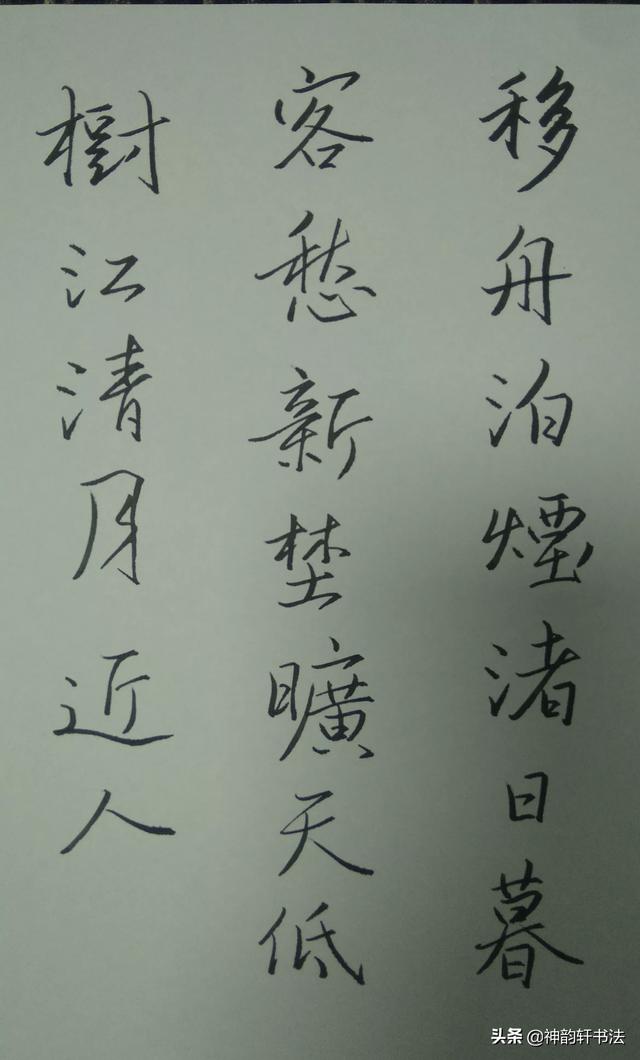 移舟泊煙渚日暮
客愁新埜曠天低
樹江清月近人
头条 @神韵轩书法